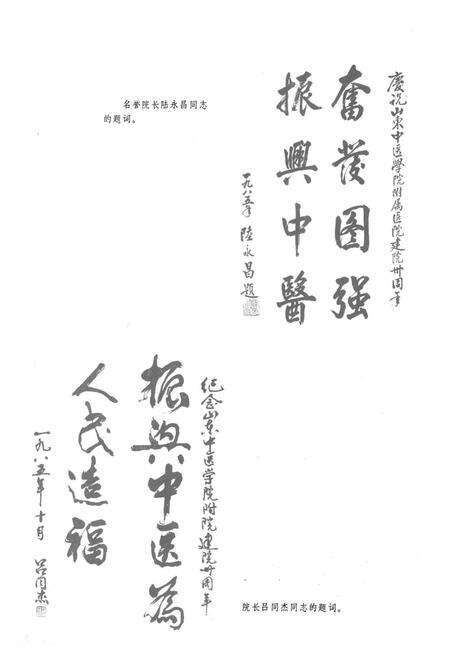 名誉院长陆永昌同志
的题词。
慶祝山东中医學院附属医院建院卅周年
奮發图强
振興中醫
一九八五年 陸永昌题
纪念山东中医学院附院建院卅周年
振興中医為
人民造福
一九八五年十月 吕同杰
院长吕同杰同志的题词。